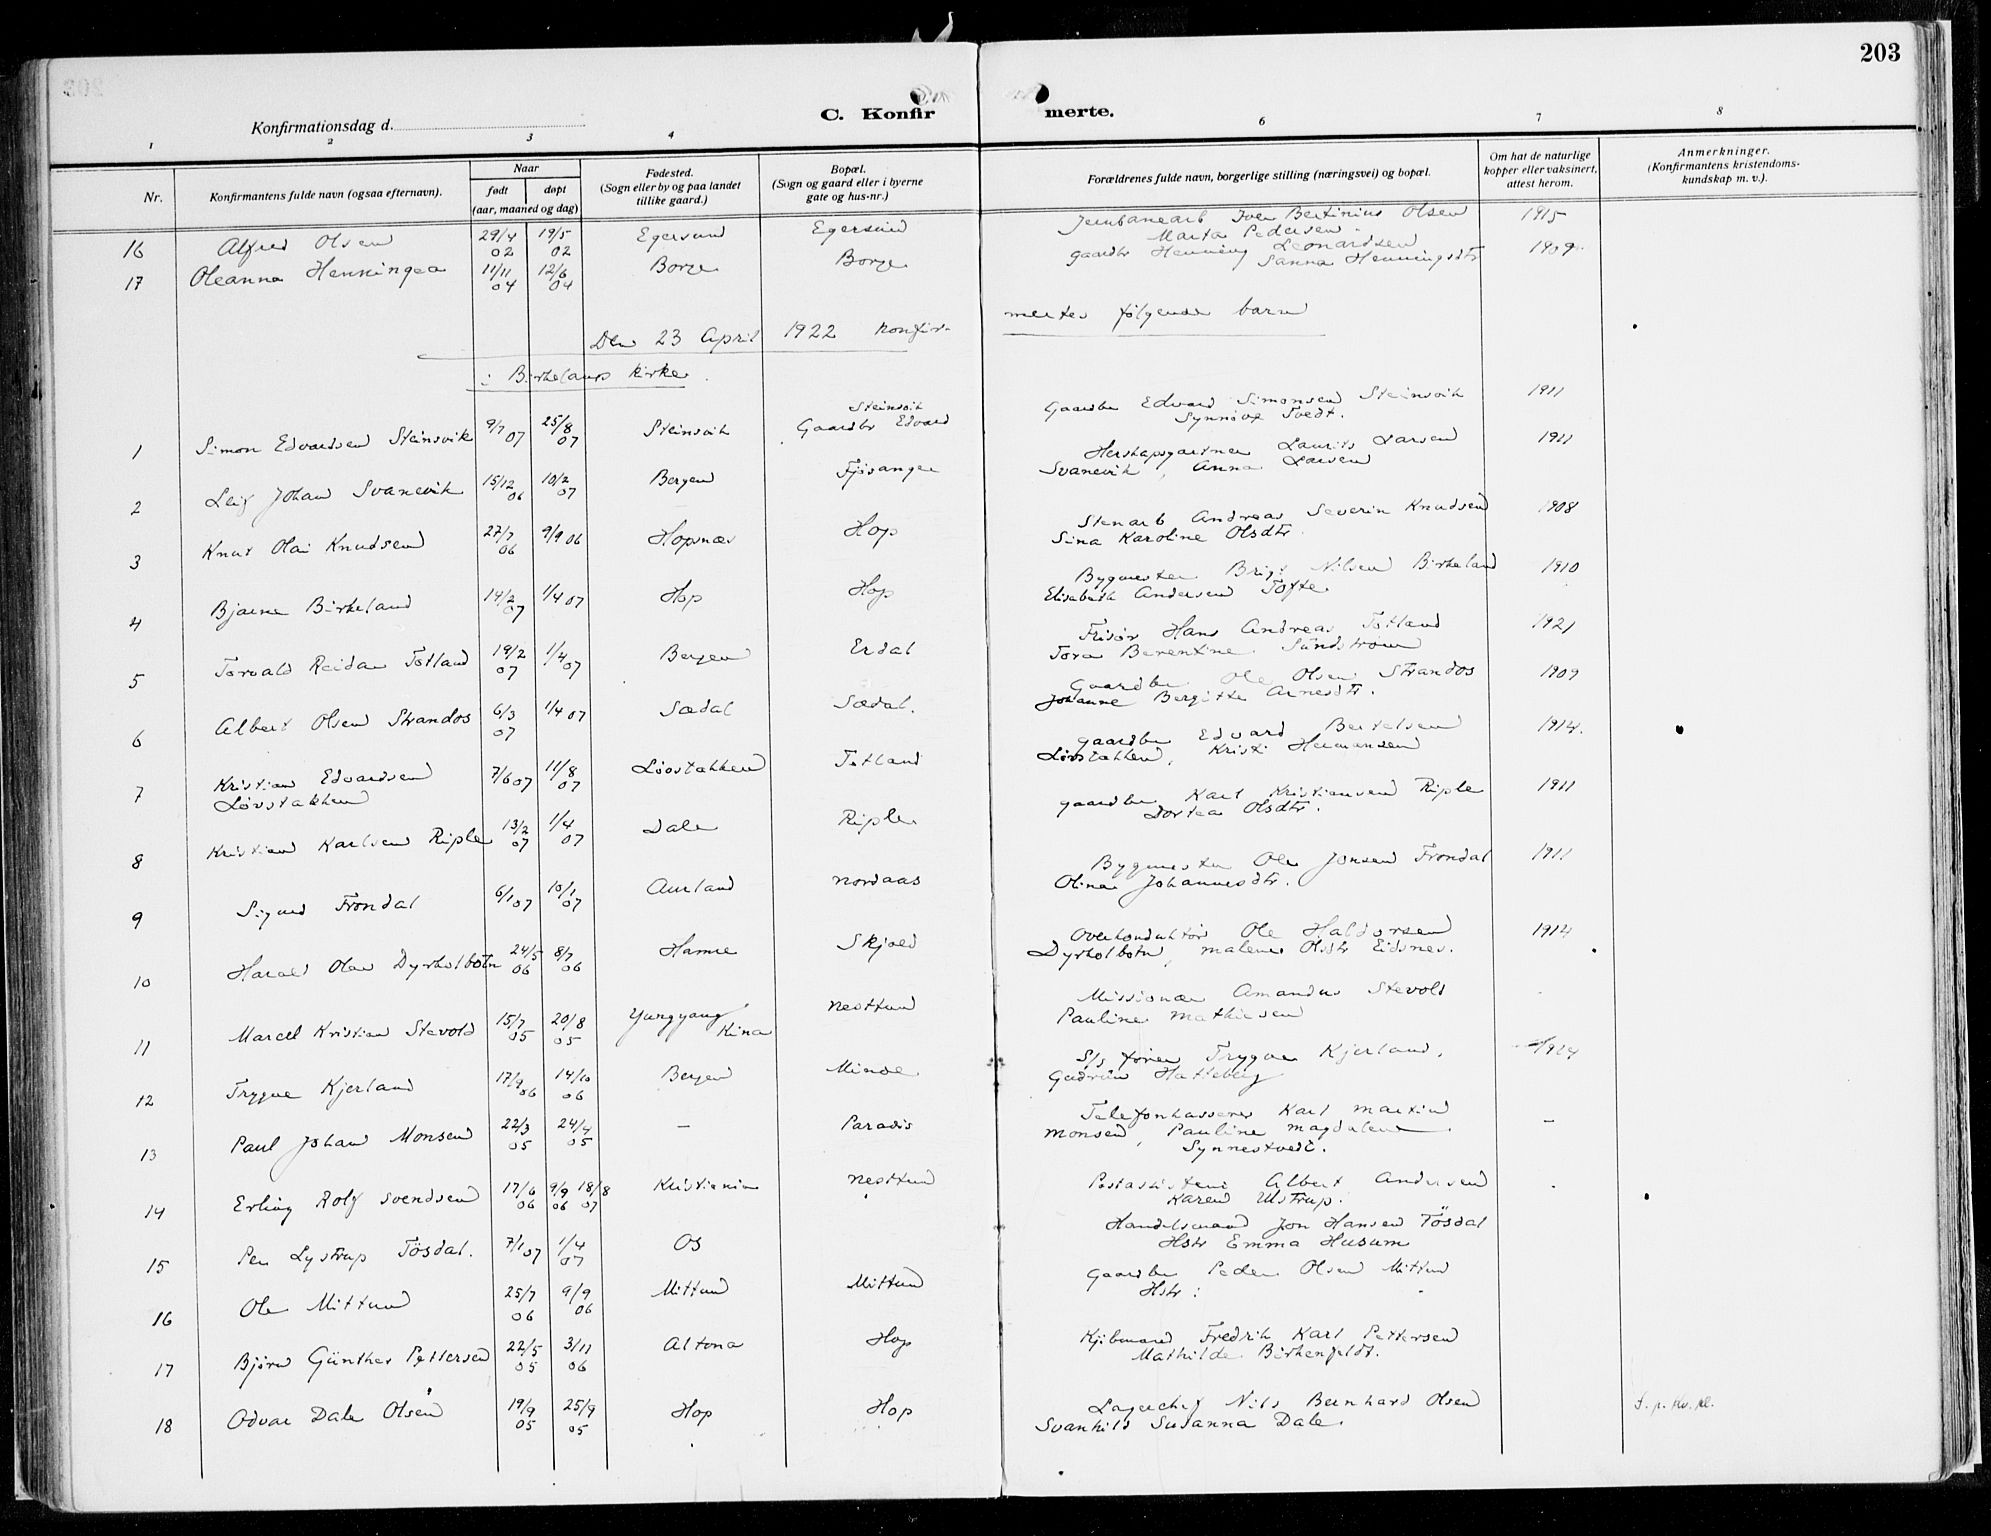 203
C. Konfirmerte.
Konfirmationsdag d.
1 2 3 4 6 7 8
Nr. Konfirmantens fulde navn (ogsaa efternavn). Naar født døpt (aar, maaned og dag) Fødested. (Sogn eller by og paa landet tillike gaard.) Bopæl. (Sogn og gaard eller i byerne gate og hus-nr.) Forældrenes fulde navn, borgerlige stilling (næringsvei) og bopæl. Om hat de naturlige kopper eller vaksinert, attest herom. Anmerkninger. (Konfirmantens kristendomskundskap m. v.).
16 Alfred Olsen 29/4 02 19/5 02 Egersund Egersund Jernbanearb Iver Bertinius Olsen 1915
Marta Pedersen
17 Oleanna Henningea 11/11 04 12/6 04 Borge Borge gaardbr Henning Leonardsen 1909
Sanna Henningsdtr
Den 23 April 1922 konfirmertes følgende barn
i Birkelands kirke.
1 Simon Edvardsen Steinsvik 9/7 07 25/8 07 Steinsvik Steinsvik Gaardbr Edvard Gaardbr Edvard Simonsen Steinsvik 1911
Synnöve Tvedt.
2 Leif Johan Svanevik 15/12 06 10/2 07 Bergen Fjösanger Herskapsgartner Laurits Larsen 1911
Svanevik, Anna Larsen
3 Knut Olai Knudsen 27/7 06 9/9 06 Hopsnes Hop Stenarb Andreas Severin Knudsen 1908
Sina Karoline Olsdtr.
4 Bjarne Birkeland 14/2 07 1/4 07 Hop Hop Bygmester Brigt Nilsen Birkeland 1910
Elisabeth Andersen Tofte.
5 Torvald Reidar Totland 19/2 07 1/4 07 Bergen Erdal Frisör Hans Andreas Totland 1921
Tora Berentine Sundstrøm
6 Albert Olsen Strandos 6/3 07 1/4 07 Sædal Sædal. Gaardbr Ole Olsen Strandos 1909
Johanne Bergitte Arnesdtr.
7 Kristian Edvardsen Lövstakken 7/6 07 11/8 07 Lövstakken Totland gaardbr Edvard Bertelsen 1914.
Lövstakken, Kristi Hermansen
8 Kristian Karlsen Riple 13/2 07 1/4 07 Dale Riple gaardbr Karl Kristiansen Riple 1911
Dortea Olsdtr.
9 Sigurd Frondal 6/1 07 10/1 07 Aurland Nordaas Bygmester Ole Jonsen Frondal 1911
Olina Johannesdtr.
10 Harald Olav Dyrkolbotn 24/5 06 8/7 06 Hamre Skjold Overkonduktör Ole Haldorsen 1914
Dyrkolbotn, Malene Olsdtr Eidsnes.
11 Marcel Kristian Stevold 15/7 05 20/8 05 Yungyang Kina Nesttun Missionær Amandus Stevold
Pauline Mathiesen
12 Trygve Kjerland 17/9 06 14/10 06 Bergen Minde S/s förer Trygve Kjerland.
Gudrun Hatteberg
13 Paul Johan Monsen 22/3 05 24/4 05 — Paradis Telefonkasserer Karl Martin —
Monsen, Pauline Magdalene
Synnestvedt.
14 Erling Rolf Svendsen 17/6 06 9/9 06 18/8 07 Kristiania Nesttun Postassistent Albert Andersen
Karen Ulstrup.
15 Per Lystrup Tösdal. 7/1 07 1/4 07 Os Handelsmand Jon Hansen Tösdal
Hstr Emma Husum
16 Ole Mittun 25/7 06 9/9 06 Mittun Mittun Gaardbr Peder Olsen Mittun
Hstr:
17 Björn Günther Pettersen 22/5 05 3/11 06 Altona Hop Kjöbmand Fredrik Karl Pettersen
Mathilde Birkenfeldt.
18 Odvar Dale Olsen 19/9 05 25/9 05 Hop Hop Lagerchef Nils Bernhard Olsen
Svanhild Susanna Dale.